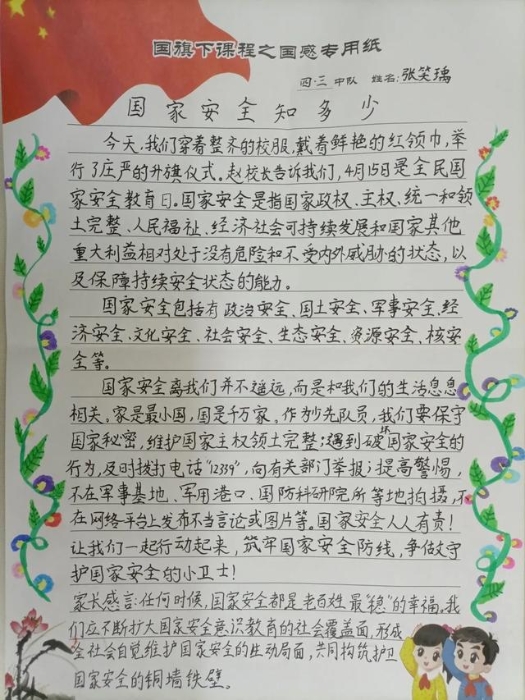 国旗下课程之国感专用纸
四.三 中队 姓名:张笑瑀
国家安全知多少
今天,我们穿着整齐的校服,戴着鲜艳的红领巾,举
行了庄严的升旗仪式。赵校长告诉我们,4月15日是全民国
家安全教育日。国家安全是指国家政权、主权、统一和领
土完整、人民福祉、经济社会可持续发展和国家其他
重大利益相对处于没有危险和不受内外威胁的状态,以
及保障持续安全状态的能力。
国家安全包括有政治安全、国土安全、军事安全、经
济安全、文化安全、社会安全、生态安全、资源安全、核安
全等。
国家安全离我们并不遥远,而是和我们的生活息息
相关。家是最小国,国是千万家。作为少先队员,我们要保守
国家秘密,维护国家主权领土完整;遇到破坏国家安全的
行为,及时拨打电话"12339",向有关部门举报;提高警惕,
不在军事基地、军用港口、国防科研院所等地拍摄,不
在网络平台上发布不当言论或图片等。国家安全人人有责!
让我们一起行动起来,筑牢国家安全防线,争做守
护国家安全的小卫士!
家长感言:任何时候,国家安全都是老百姓最"稳"的幸福。我
们应不断扩大国家安全意识教育的社会覆盖面,形成
全社会自觉维护国家安全的生动局面,共同构筑护卫
国家安全的铜墙铁壁。